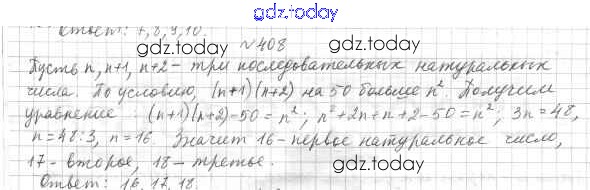 gdz.today
Ответ: 7, 8, 9, 10.
gdz.today №408 gdz.today
Пусть n, n+1, n+2 – три последовательных натуральных
числа. По условию, (n+1)(n+2) на 50 больше n². Получим
уравнение: (n+1)(n+2)-50 = n²; n²+2n+n+2-50 = n²; 3n=48,
n=48:3, n=16. Значит 16 - первое натуральное число,
17 - второе, 18 - третье.
gdz.today gdz.today
Ответ: 16, 17, 18.